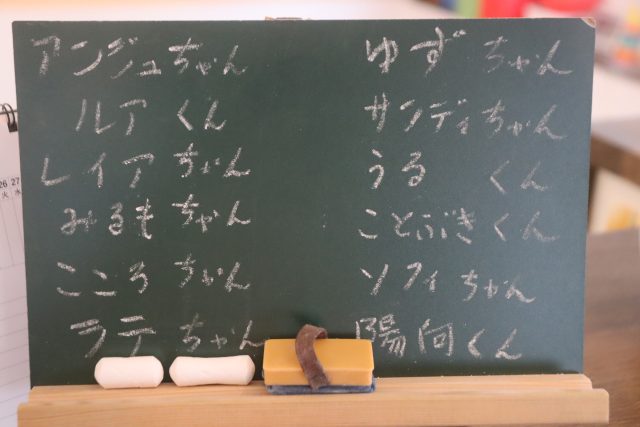 アンジュちゃん
ルアくん
レイアちゃん
みるもちゃん
こころちゃん
ラテちゃん
ゆずちゃん
サンディちゃん
うるくん
ことぶきくん
ソフィちゃん
陽向くん
26 27
火 水